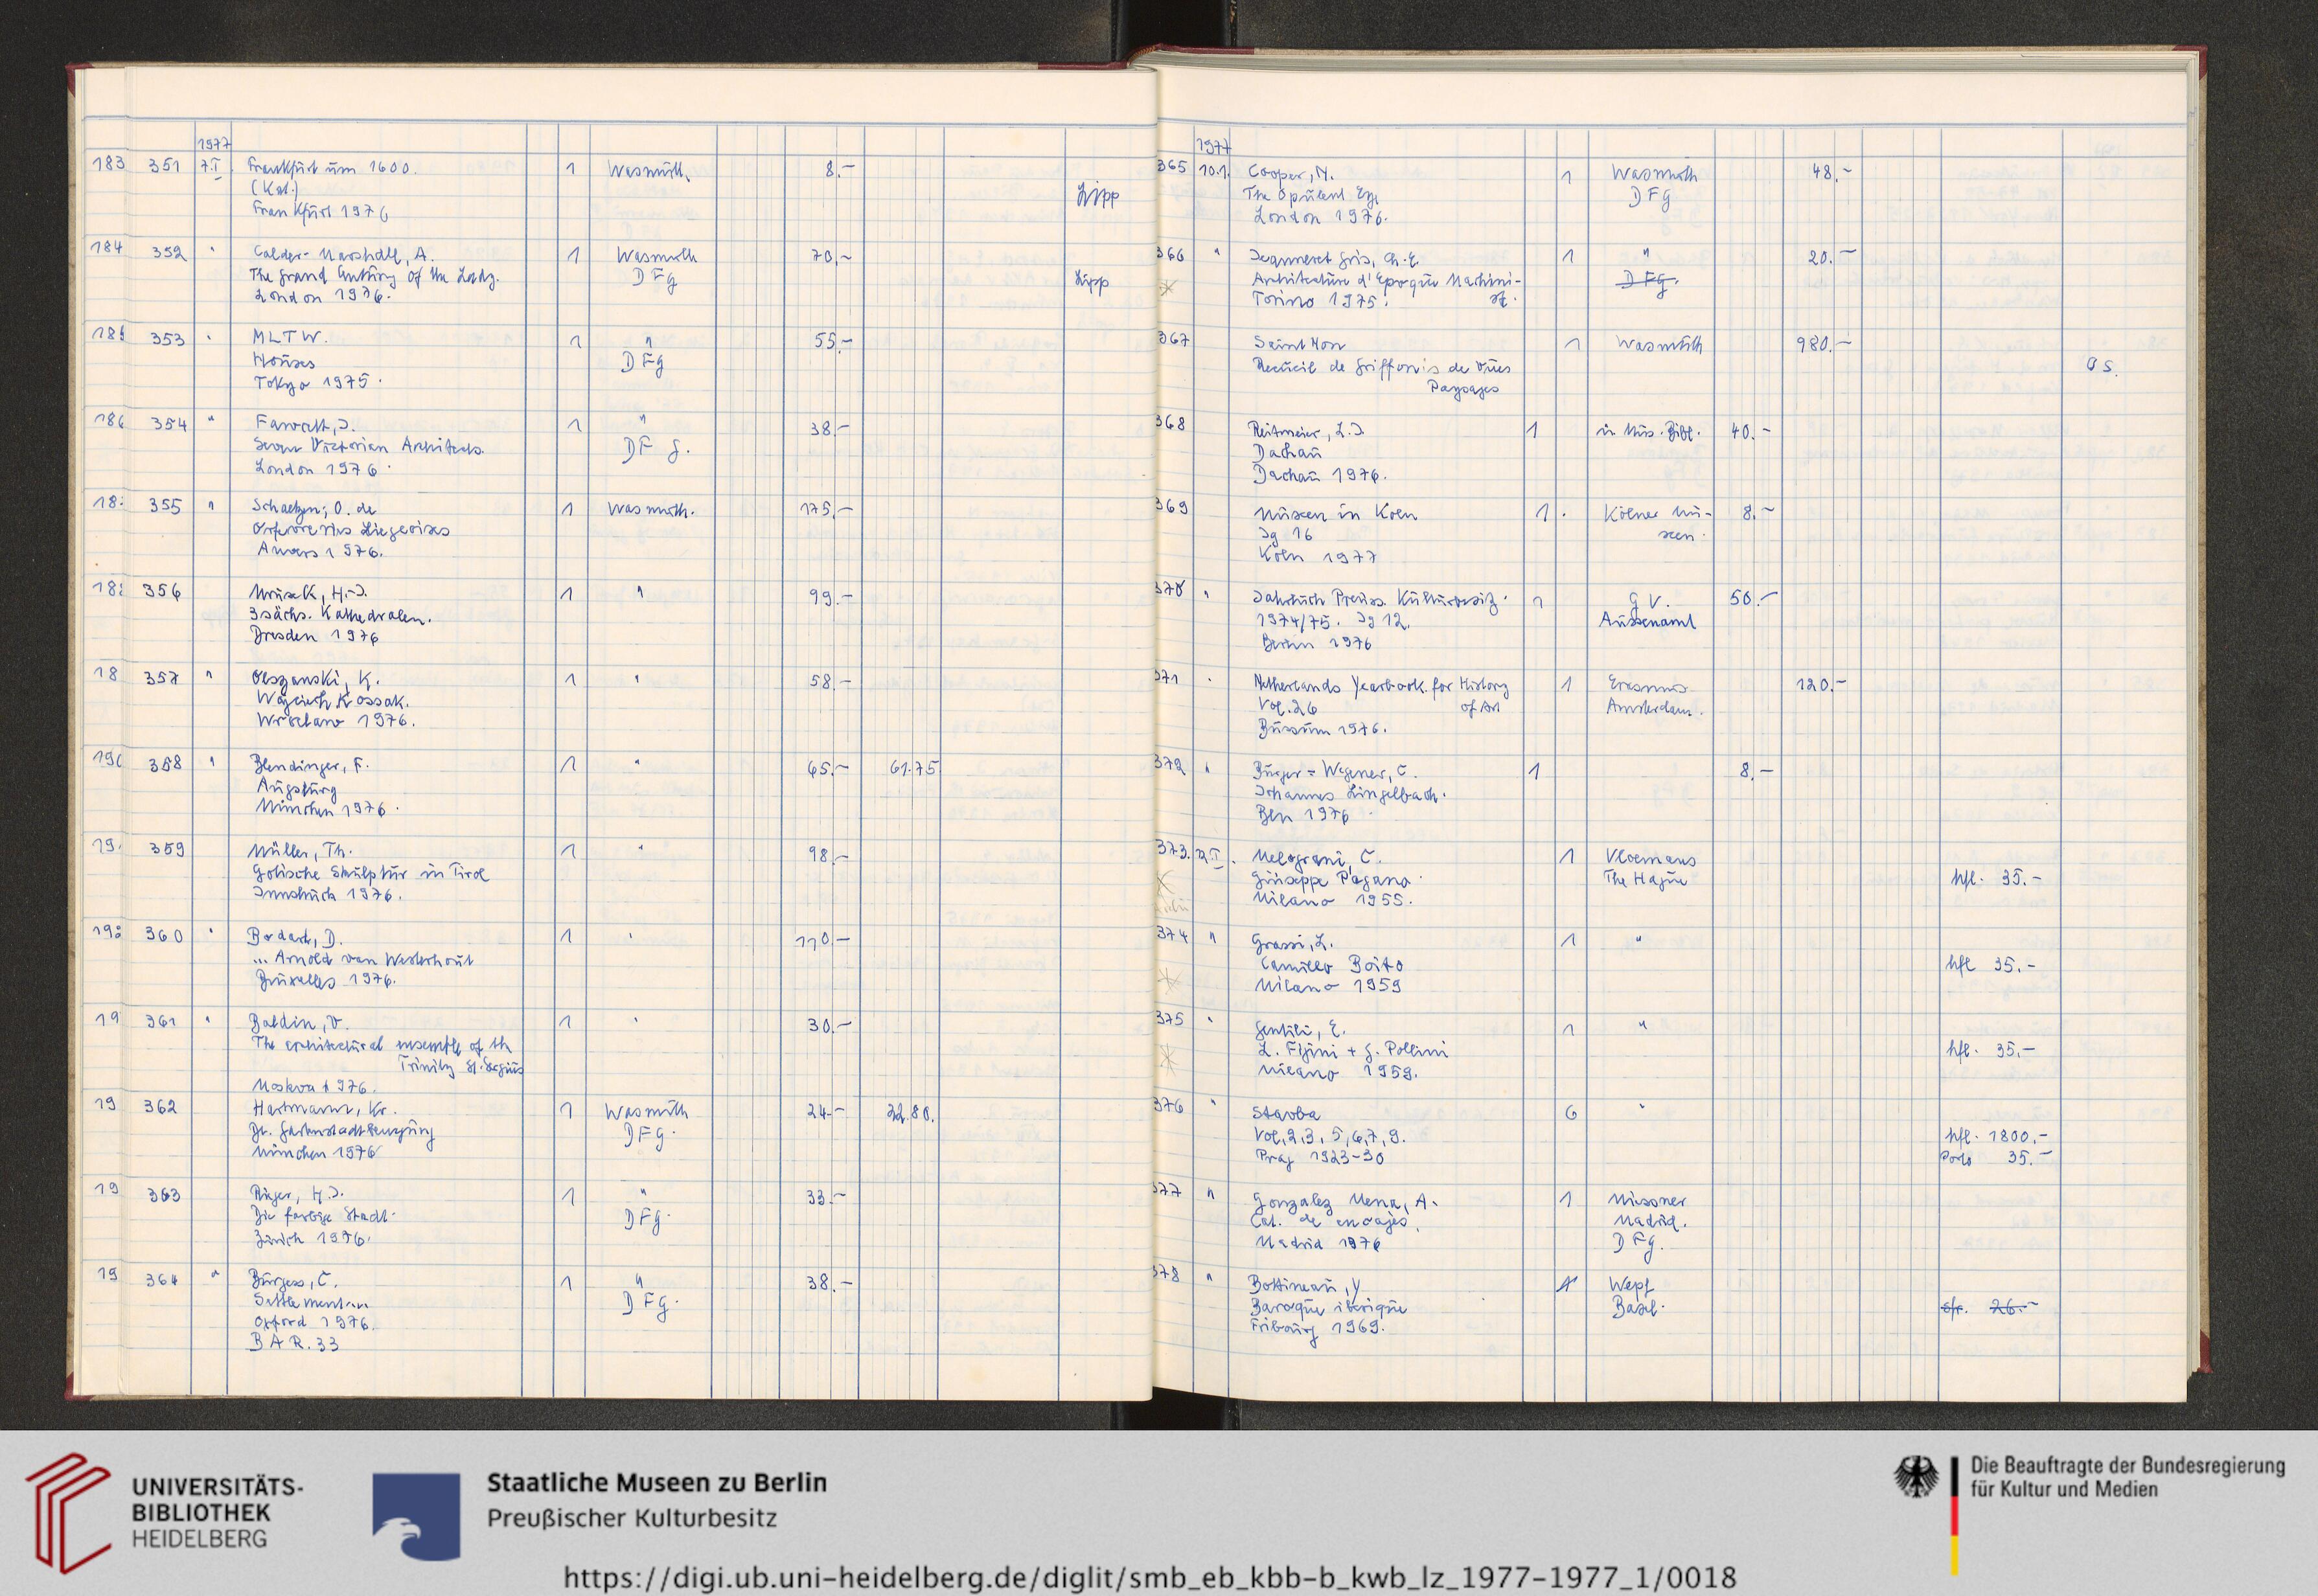 1977
183 351 7.I. Frankfurt um 1600. 1 Wasmuth. 8.-
(Kat.)
Frankfurt 1976 Lipp
184 352 " Calder-Marshall, A. 1 Wasmuth 70,-
The Grand Century of the Lady. DFG Lipp
London 1976.
353 " MLTW. 1 " 55,-
Houses DFG
Tokyo 1975.
186 354 " Fawcett, J. 1 " 38,-
Seven Victorian Architects. DFG.
London 1976.
18 355 " Schaetzen, O. de 1 Wasmuth. 175,-
Orfevreries Liegeoises
Anvers 1976.
18 356 Mrusek, H.-J. 1 " 99.-
3 sächs. Kathedralen.
Dresden 1976
18 357 " Olszanski, K. 1 " 58,-
Wojciech Kossak.
Wroclaw 1976.
190 358 " Blendinger, F. 1 " 65.- 61.75
Augsburg
München 1976.
19 359 Müller, Th. 1 " 98,-
Gotische Skulptur in Tirol
Innsbruck 1976.
360 " Bodart, D. 1 " 110,-
... Arnold van Westerhout
Bruxelles 1976.
19 361 " Baldin, V. 1 " 30.-
The architectural ensemble of the
Trinity St. Sergius
Moskva 1976.
19 362 Hartmann, Kr. 1 Wasmuth 24.- 22.80.
Dt. Gartenstadtbewegung DFG.
München 1976
19 363 Rieger, H.J. 1 " 33.-
Die farbige Stadt. DFG.
Zürich 1976.
19 364 " Burgess, C. 1 " 38.-
DFG.
Oxford 1976.
BAR. 33
1977
365 10.1. Cooper, N. 1 Wasmuth 48,-
The Opulent Eye DFG
London 1976.
366 " Jeanneret Gris, Ch. E. 1 " 20.-
Architecture d'Epoque Machini- DFG.
Torino 1975. st.
367 Saint Non 1 Wasmuth 980.-
Recueil de Griffonis de Vues
Paysages
368 Reitmeier, L.J. 1 40.-
Dachau
Dachau 1976.
369 Museen in Köln 1. Kölner Mu- 8.-
Jg 16 seen.
Köln 1977
370 " Jahrbuch Preuss. Kulturbesitz. 1 G V. 50.-
1974/75. Jg 12. Aussenamt
Berlin 1976
371 " Netherlands Yearbook for History 1 Erasmus 120.-
Vol. 26 of Art Amsterdam.
Bussum 1976.
372 " Burger-Wegener, C. 1 8.-
Johannes Lingelbach.
Bln 1976
373. Melograni, C. 1 Vloemans
Giuseppe Pagano. The Hague hfl. 35.-
Milano 1955.
374 " Grassi, L. 1 "
Camillo Boito hfl 35.-
Milano 1959
375 " Gentili, E. 1 "
L. Figini + G. Pollini hfl. 35.-
Milano 1959.
376 " Stavba 6 "
Vol, 2, 3, 5, 6, 7, 9. hfl. 1800,-
Prag 1923-30 Porto 35.-
377 " Gonzalez Mena, A. 1 Miessner
Cat. de encajes. Madrid.
Madrid 1976 DFG.
378 " Bottineau, Y 1 Wepf
Baroque iberique Basel. sfr. 26.-
Fribourg 1969.
UNIVERSITÄTS-
BIBLIOTHEK
HEIDELBERG
Staatliche Museen zu Berlin
Preußischer Kulturbesitz
Die Beauftragte der Bundesregierung
für Kultur und Medien
https://digi.ub.uni-heidelberg.de/diglit/smb_eb_kbb-b_kwb_lz_1977-1977_1/0018